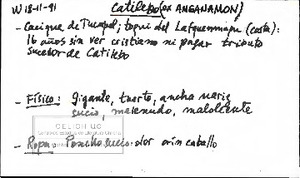 W 18-11-91 Catilebo (ex ANGANAMON)
- Cacique de Tucapel; toqui del Lafquenmapu (costa):
16 años sin ver cristiano ni pagar tributo
Sucesor de Catilebo
- Físico: gigante, tuerto, ancha nariz
sucio, melenudo, maloliente
CELICH UC
- Ropa: Poncho sucio - olor orín caballo